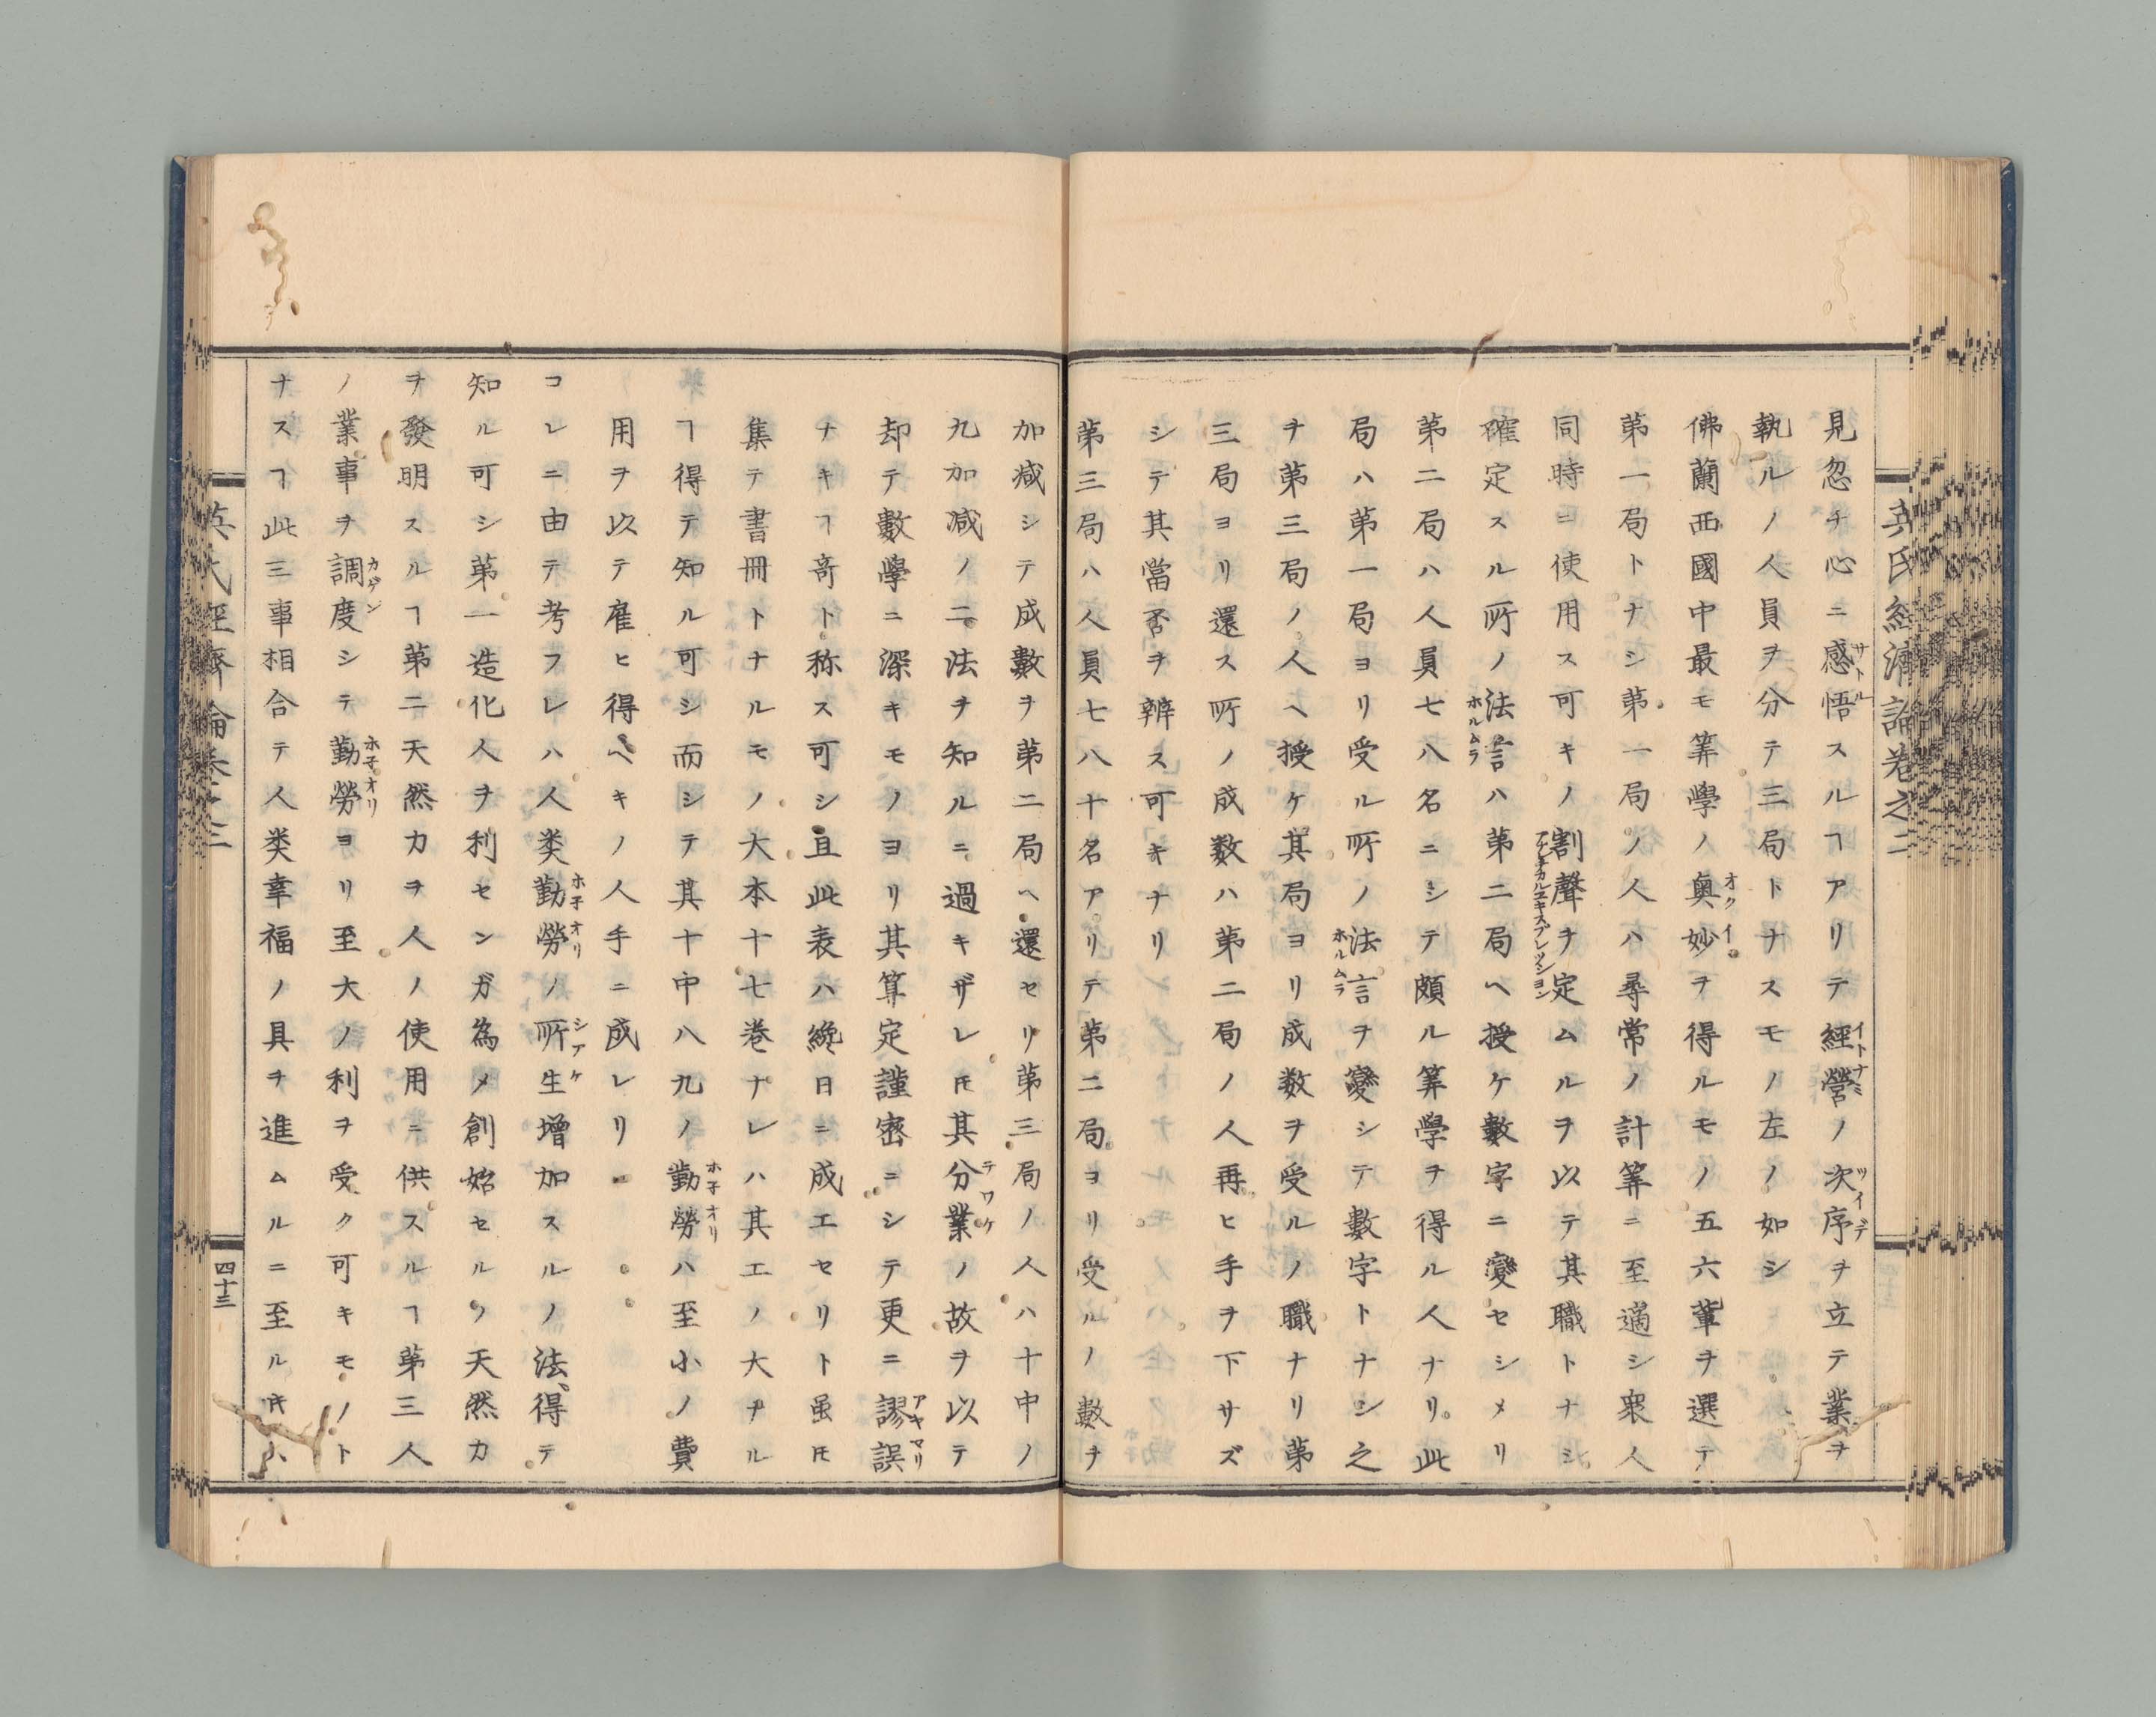 英氏経済論巻之二
見忽チ心ニ感悟スルヿアリテ經營ノ次序ヲ立テ業ヲ
サトル
イトナミ
ツイデ
執ルノ人員ヲ分テ三局トナスモノ左ノ如シ
佛蘭西國中最モ筭學ノ奥妙ヲ得ルモノ五六軰ヲ選テ
オクイ
第一局トナシ第一局ノ人ハ尋常ノ計筭ニ至適シ衆人
同時ニ使用ス可キノ割聲ヲ定ムルヲ以テ其職トナシ
確定スル所ノ法言ハ第二局ヘ授ケ數字ニ變セシメリ
ホルムラ
第二局ハ人員七八名ニシテ頗ル筭學ヲ得ル人ナリ此
局ハ第一局ヨリ受ル所ノ法言ヲ變シテ數字トナシ之
ホルムラ
ヲ第三局ノ人ヘ授ケ其局ヨリ成数ヲ受ルノ職ナリ第
三局ヨリ還ス所ノ成数ハ第二局ノ人再ヒ手ヲ下サズ
シテ其當否ヲ辨ス可キナリ
第三局ハ人員七八十名アリテ第二局ヨリ受ルノ數ヲ
加减シテ成數ヲ第二局ヘ還セリ第三局ノ人ハ十中ノ
九加减ノ二法ヲ知ルニ過キザレ𪜈其分業ノ故ヲ以テ
テワケ
却テ數學ニ深キモノヨリ其算定謹密ニシテ更ニ謬誤
アヤマリ
ナキヿ竒ト称ス可シ且此表ハ纔日ニ成エセリト虽𪜈
集テ書冊トナルモノ大本十七巻ナレハ其エノ大ナル
ヿ得テ知ル可シ而シテ其十中八九ノ勤勞ハ至小ノ費
ホ子オリ
用ヲ以テ雇ヒ得ヘキノ人手ニ成レリ
コレニ由テ考フレハ人类勤勞ノ所生增加スルノ法得テ
ホ子オリ
シアケ
知ル可シ第一造化人ヲ利センガ為メ創始セルノ天然力
ヲ發明スルヿ第二天然力ヲ人ノ使用ニ供スルヿ第三人
ノ業事ヲ調度シテ勤勞ヨリ至大ノ利ヲ受ク可キモノト
カゲン
ホ子オリ
ナスヿ此三事相合テ人类幸福ノ具ヲ進ムルニ至ル
英氏經濟論巻之二
四十三